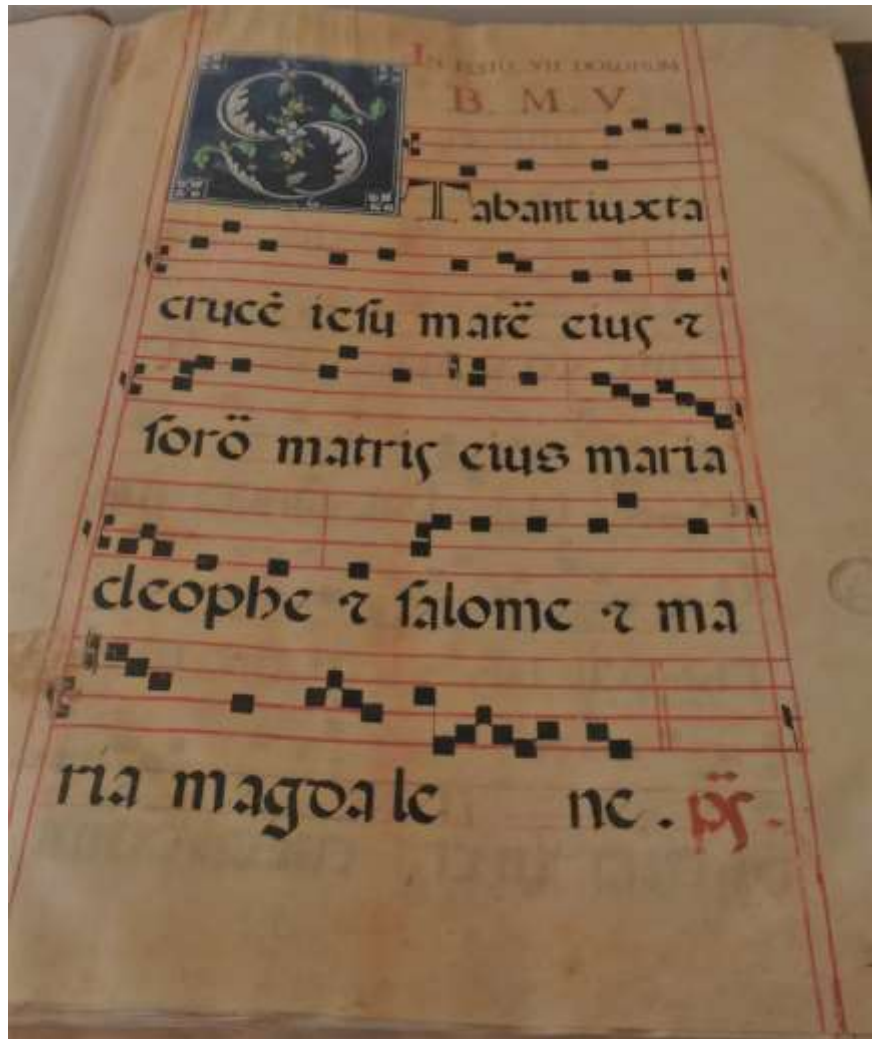 IN FESTO VII DOLORUM
B. M. V
STabant iuxta
crucē iesu matē eius ⁊
sorō matris eius maria
cleophe ⁊ salome ⁊ ma
ria magdale ne . p̄s .